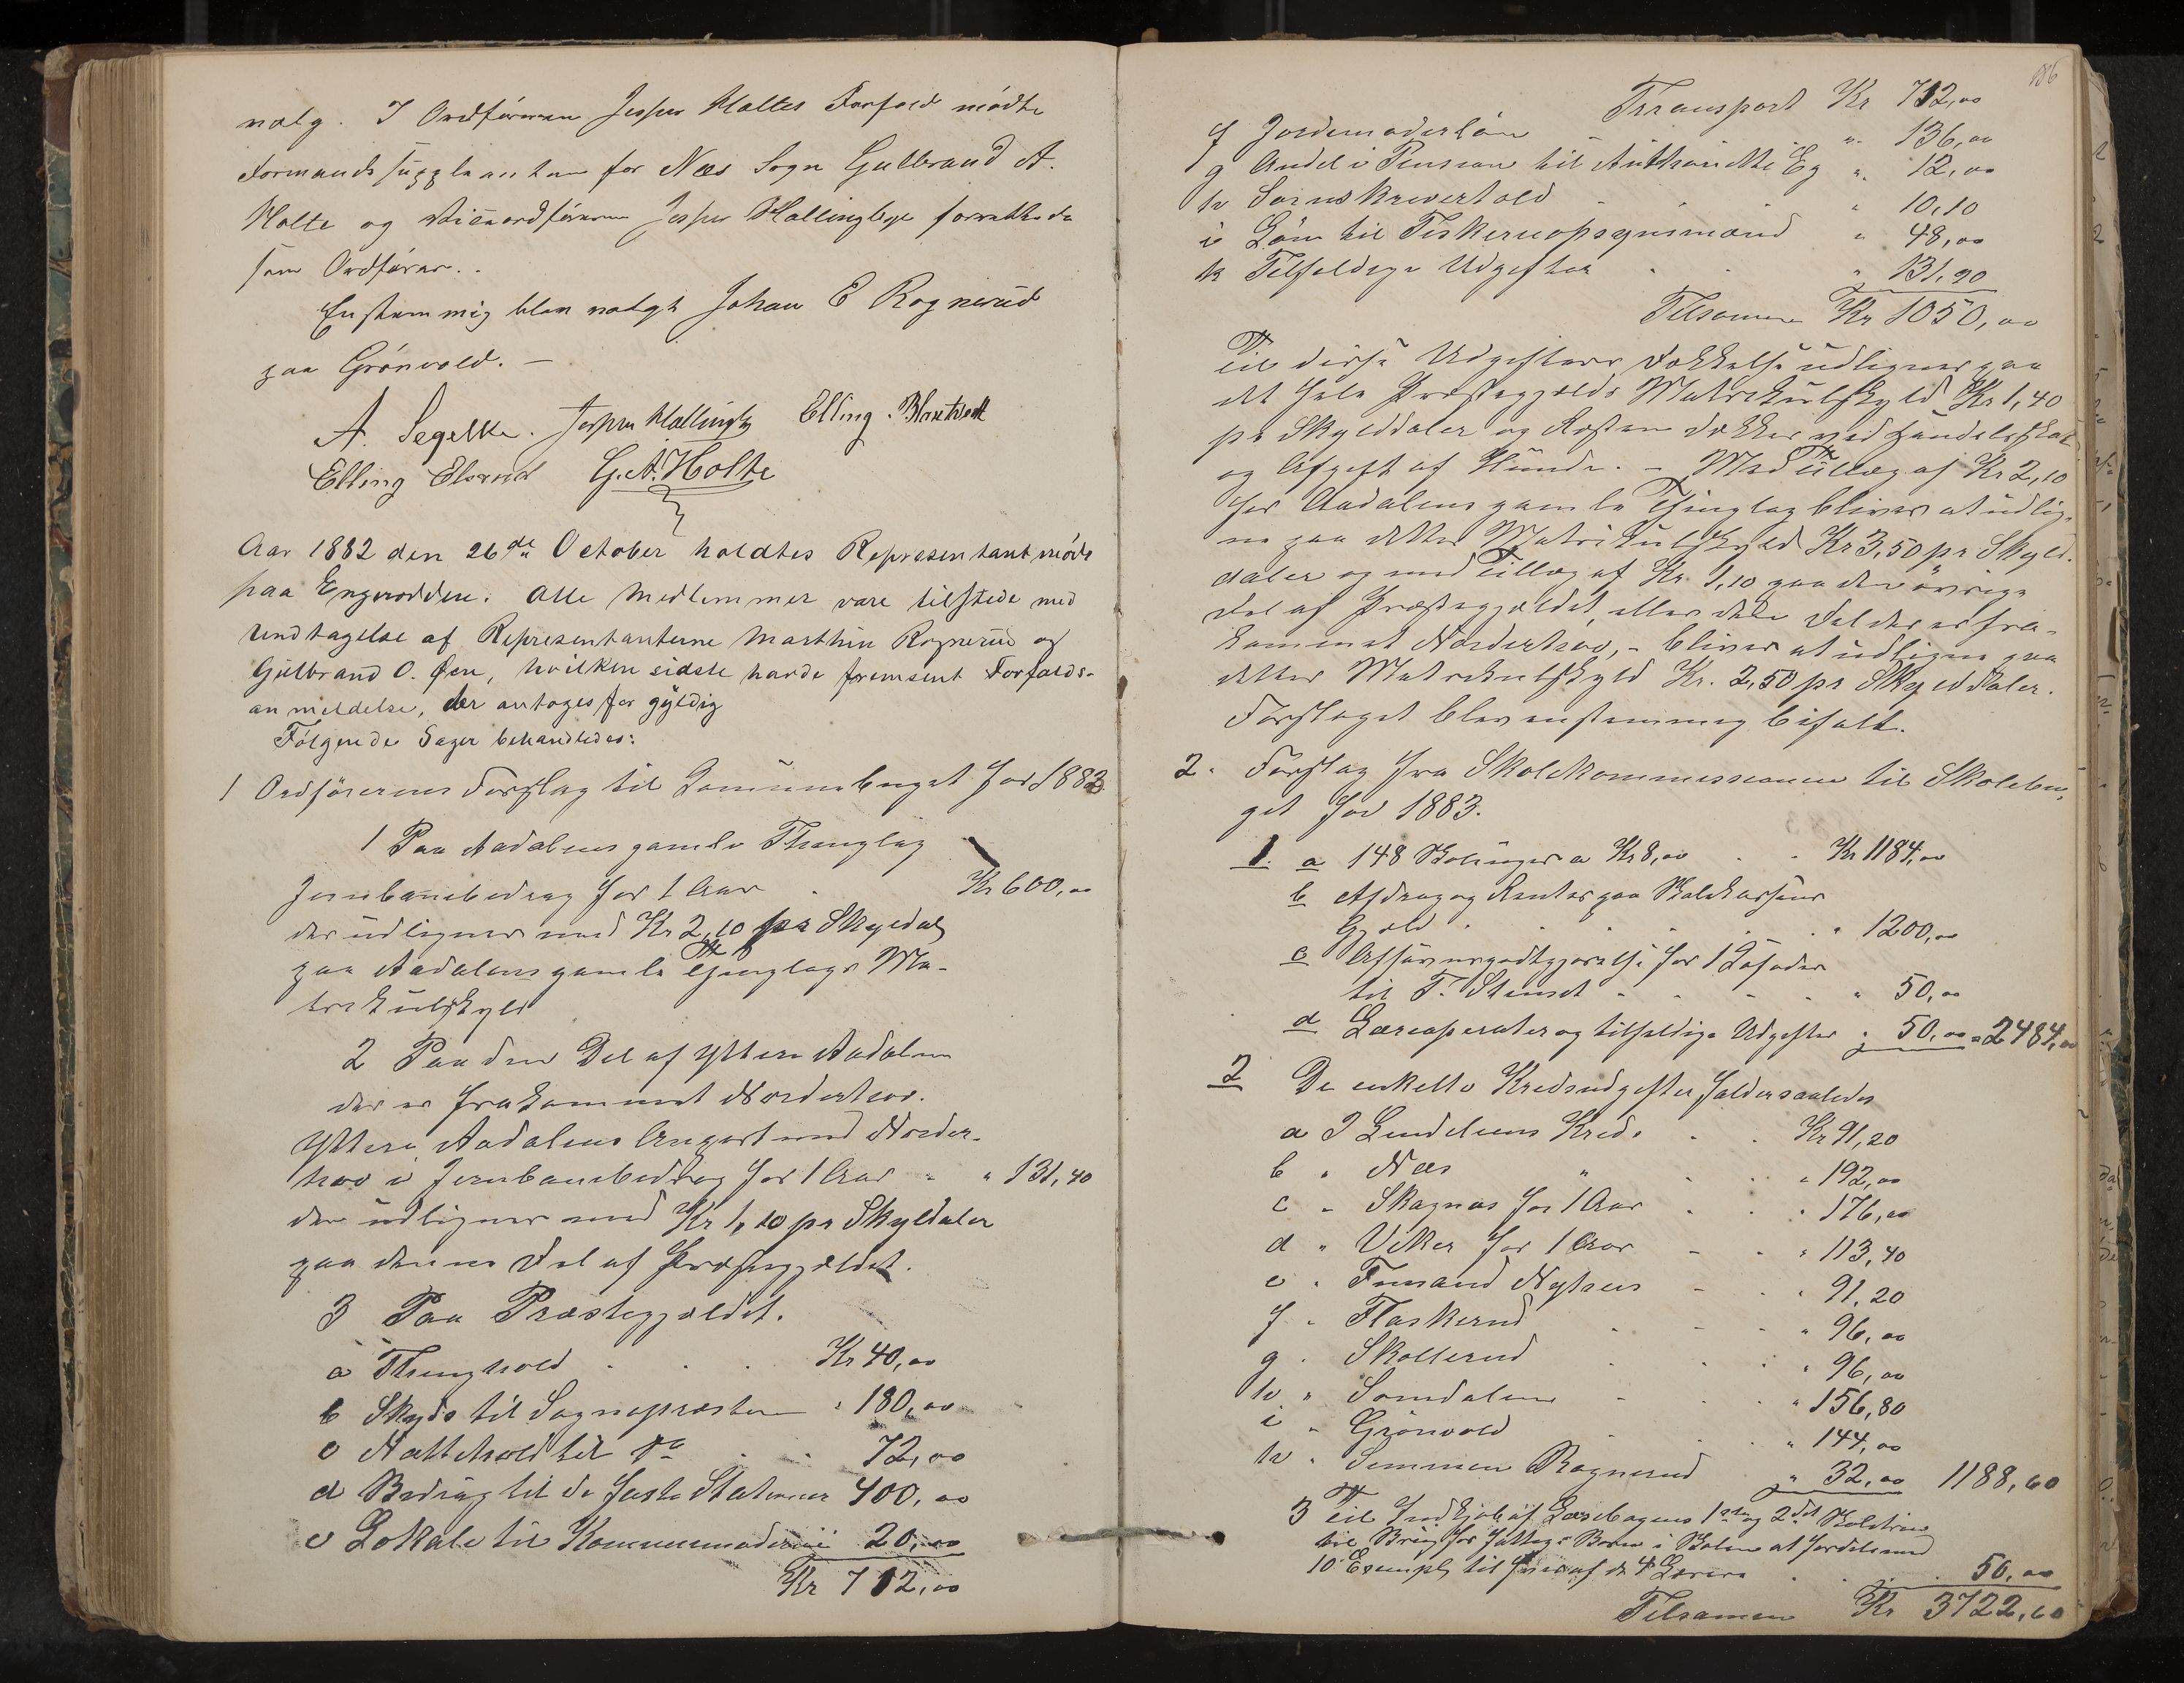 valg. I Ordförerens Jesper Holtes Forfald mödte
Formandssuppleanten for Næs Sogn Gulbrand A.
Holte og Viceordföreren Jesper Hallingby forrettede
som Ordförer.
Enstemmig blev valgt Johan E Rognerud
paa Grönvold. –
A. Segelke. Jesper Hallingby Elling
Elling Elsrud G. A. Holte
Aar 1882 den 26de October holdtes Representantmöde
paa Engerodden. Alle Medlemmer vare tilstede med
Undtagelse af Representanterne Marthin Rognerud og
Gulbrand O. Øen, hvilken sidste havde fremsent Forfalds-
anmeldelse, der antoges for gyldig
Følgende Sager behandledes:
1 Ordførerens Forslag til Comunebuget for 1883
1 Paa Aadalens gamle Thinglag
Jernbanebedrag for 1 Aar . Kr 600,00
der udlignes med Kr 2,10 pr Skyldal
paa Aadalens gamle Thinglags Ma-
trikulskyld
2 Paa den Del af Ytre Aadalen
der er frakommet Norderhov.
Ytre Aadalens Anpart med Norder-
hov i Jernbanebidrag for 1 Aar - " 131,40
der udlignes med Kr 1,10 pr Skyldaler
paa denne Del af Præstegjeldet.
3 Paa Præstegjeldet.
a Thinghold . . . Kr 40,00
b Skyds til Sognepræsten " 180,00
c Nattehold til do . . 72,00
d Bedrag til de faste Stationer 400,00
e Lokale til Kommunemöderne 20,00
Kr 712,00
186
Transport Kr 712,00
f Jordemoderlön " 136,00
g Andel i Pension til Eg " 12,00
h - - " 10,10
i Lön til Fiskeriopsynsmand " 48,00
k Tilfeldige Udgifter . . " 131,90
Tilsamen Kr 1050,00
Til disse Udgifters Dækkelse udlignes paa
det hele Præstegjelds Matrikulskyld Kr 1,40
pr Skylddaler og Resten dækkes ved Handelsskat
og Afgift af Hunde. – Med Tillæg af Kr 2,10
for Aadalens gamle Thinglag bliver at udlig-
ne paa dettes Matrikulskyld Kr 3,50 pr Skyld-
daler og med Tillæg af Kr. 1,10 paa den övrige
Del af Præstegjeldet, eller den Del der er fra-
kommet Norderhov, – bliver at udligne paa
dettes Matrikulskyld Kr. 2,50 pr Skylddaler.
Forslaget blev enstemmig bifalt.
2. Forslag fra Skolekommissionen til Skolebu-
get for 1883.
1. a 148 Skoleuger a Kr 8,00 . . Kr 1184,00
b Afdrag og Renter paa Skolekassens
Gjeld . . . . . " 1200,00
c for 1
til T. - - - - " 50,00
d Læreaparater og tilfeldige Udgifter " 50,00 = 2484,00
2 De enkelte Kredsudgifter falder saaledes
a I Lundeliens Kreds . . Kr 91,20
b " Næs " . . " 192,00
c " Skagnæs for 1 Aar . . " 176,00
d " Viker for 1 Aar - . " 113,40
e " Finsand Nyhuus - . " 91,20
f " Flaskerud . - . " 96,00
g " Skollerud . . . " 96,00
h " Somdalen - . " 156,80
i " Grönvold . . . " 144,00
k " Semmen Rognerud " 32,00 1188,60
3 Til Indkjöb af Læsebogens 1ste og 2det Skoletrin
til Brug for fattige Börn i Skolen at fordeles med
10 Exempl til hver af de 4 Lærere . . . 50,00
Tilsamen Kr 3722,60